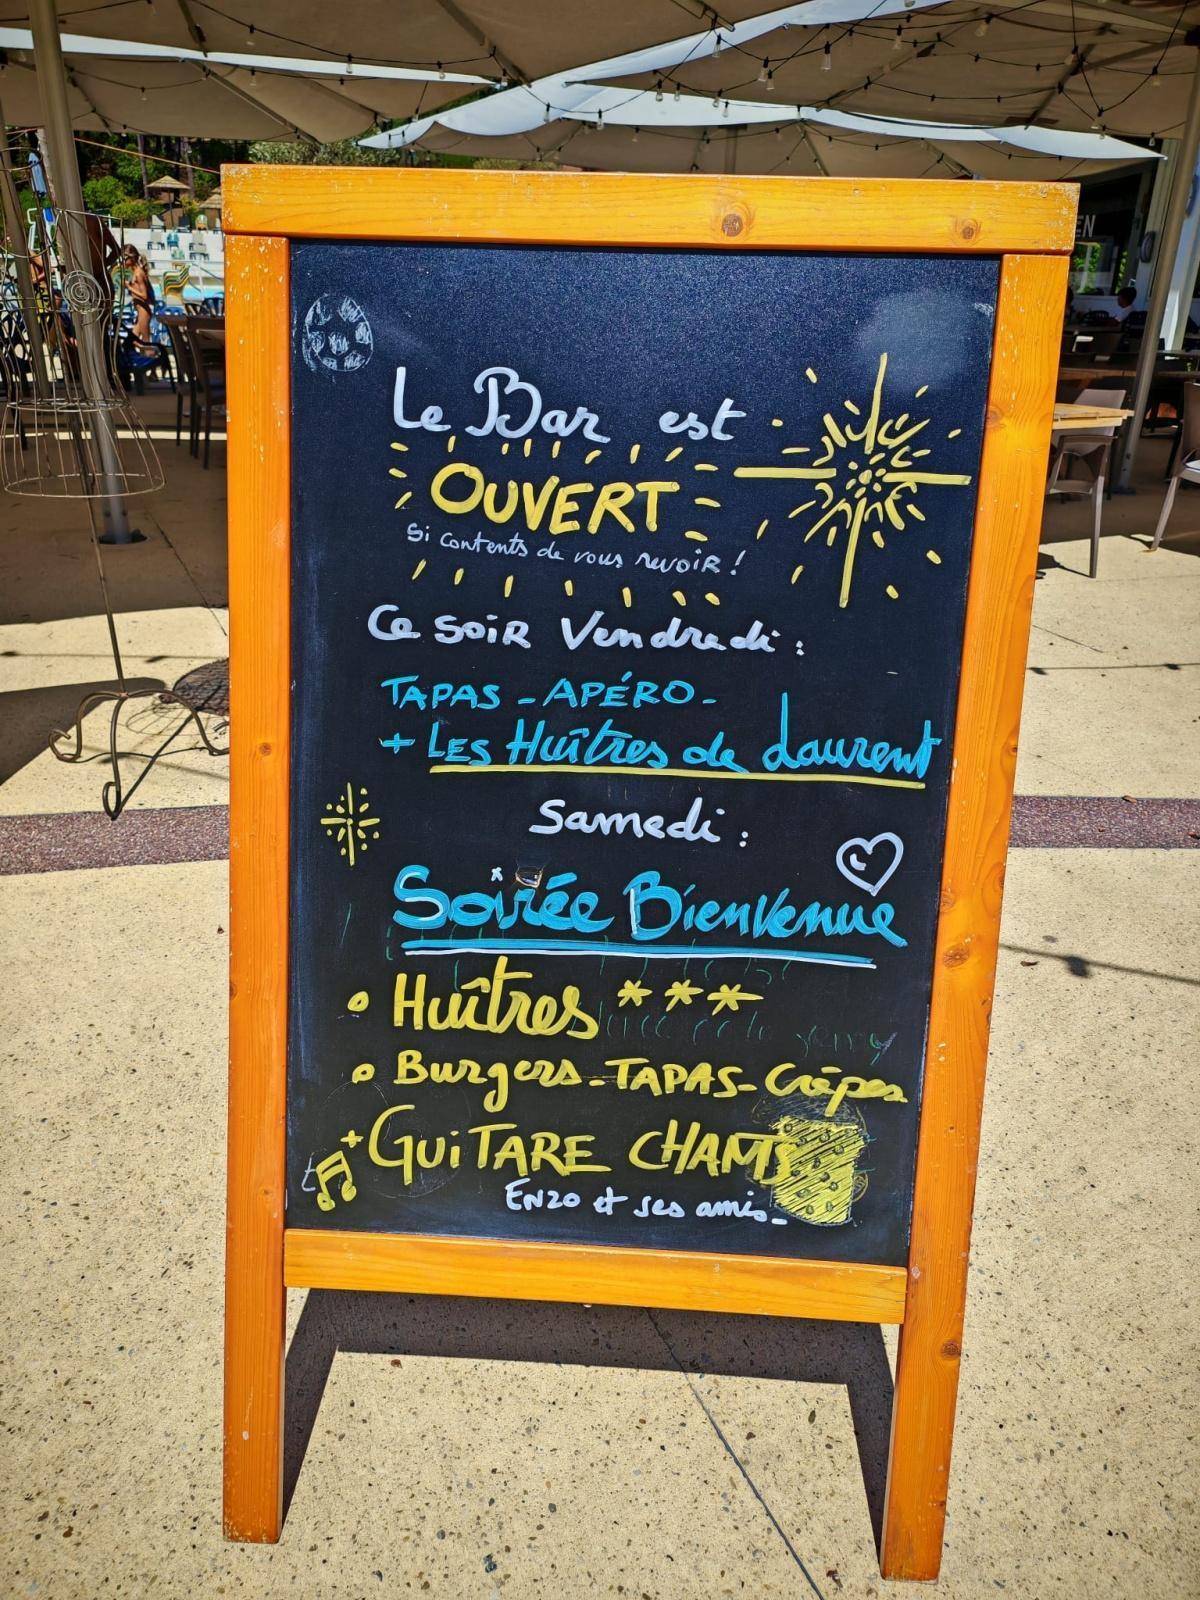 EN
Le Bar est
OUVERT
Si contents de vous revoir !
Ce soir Vendredi :
TAPAS - APÉRO -
+ LES Huîtres de Laurent
Samedi :
Soirée Bienvenue
• Huîtres ***
• Burgers - TAPAS - Crêpes
+ GUITARE CHANTS
ENZO et ses amis -